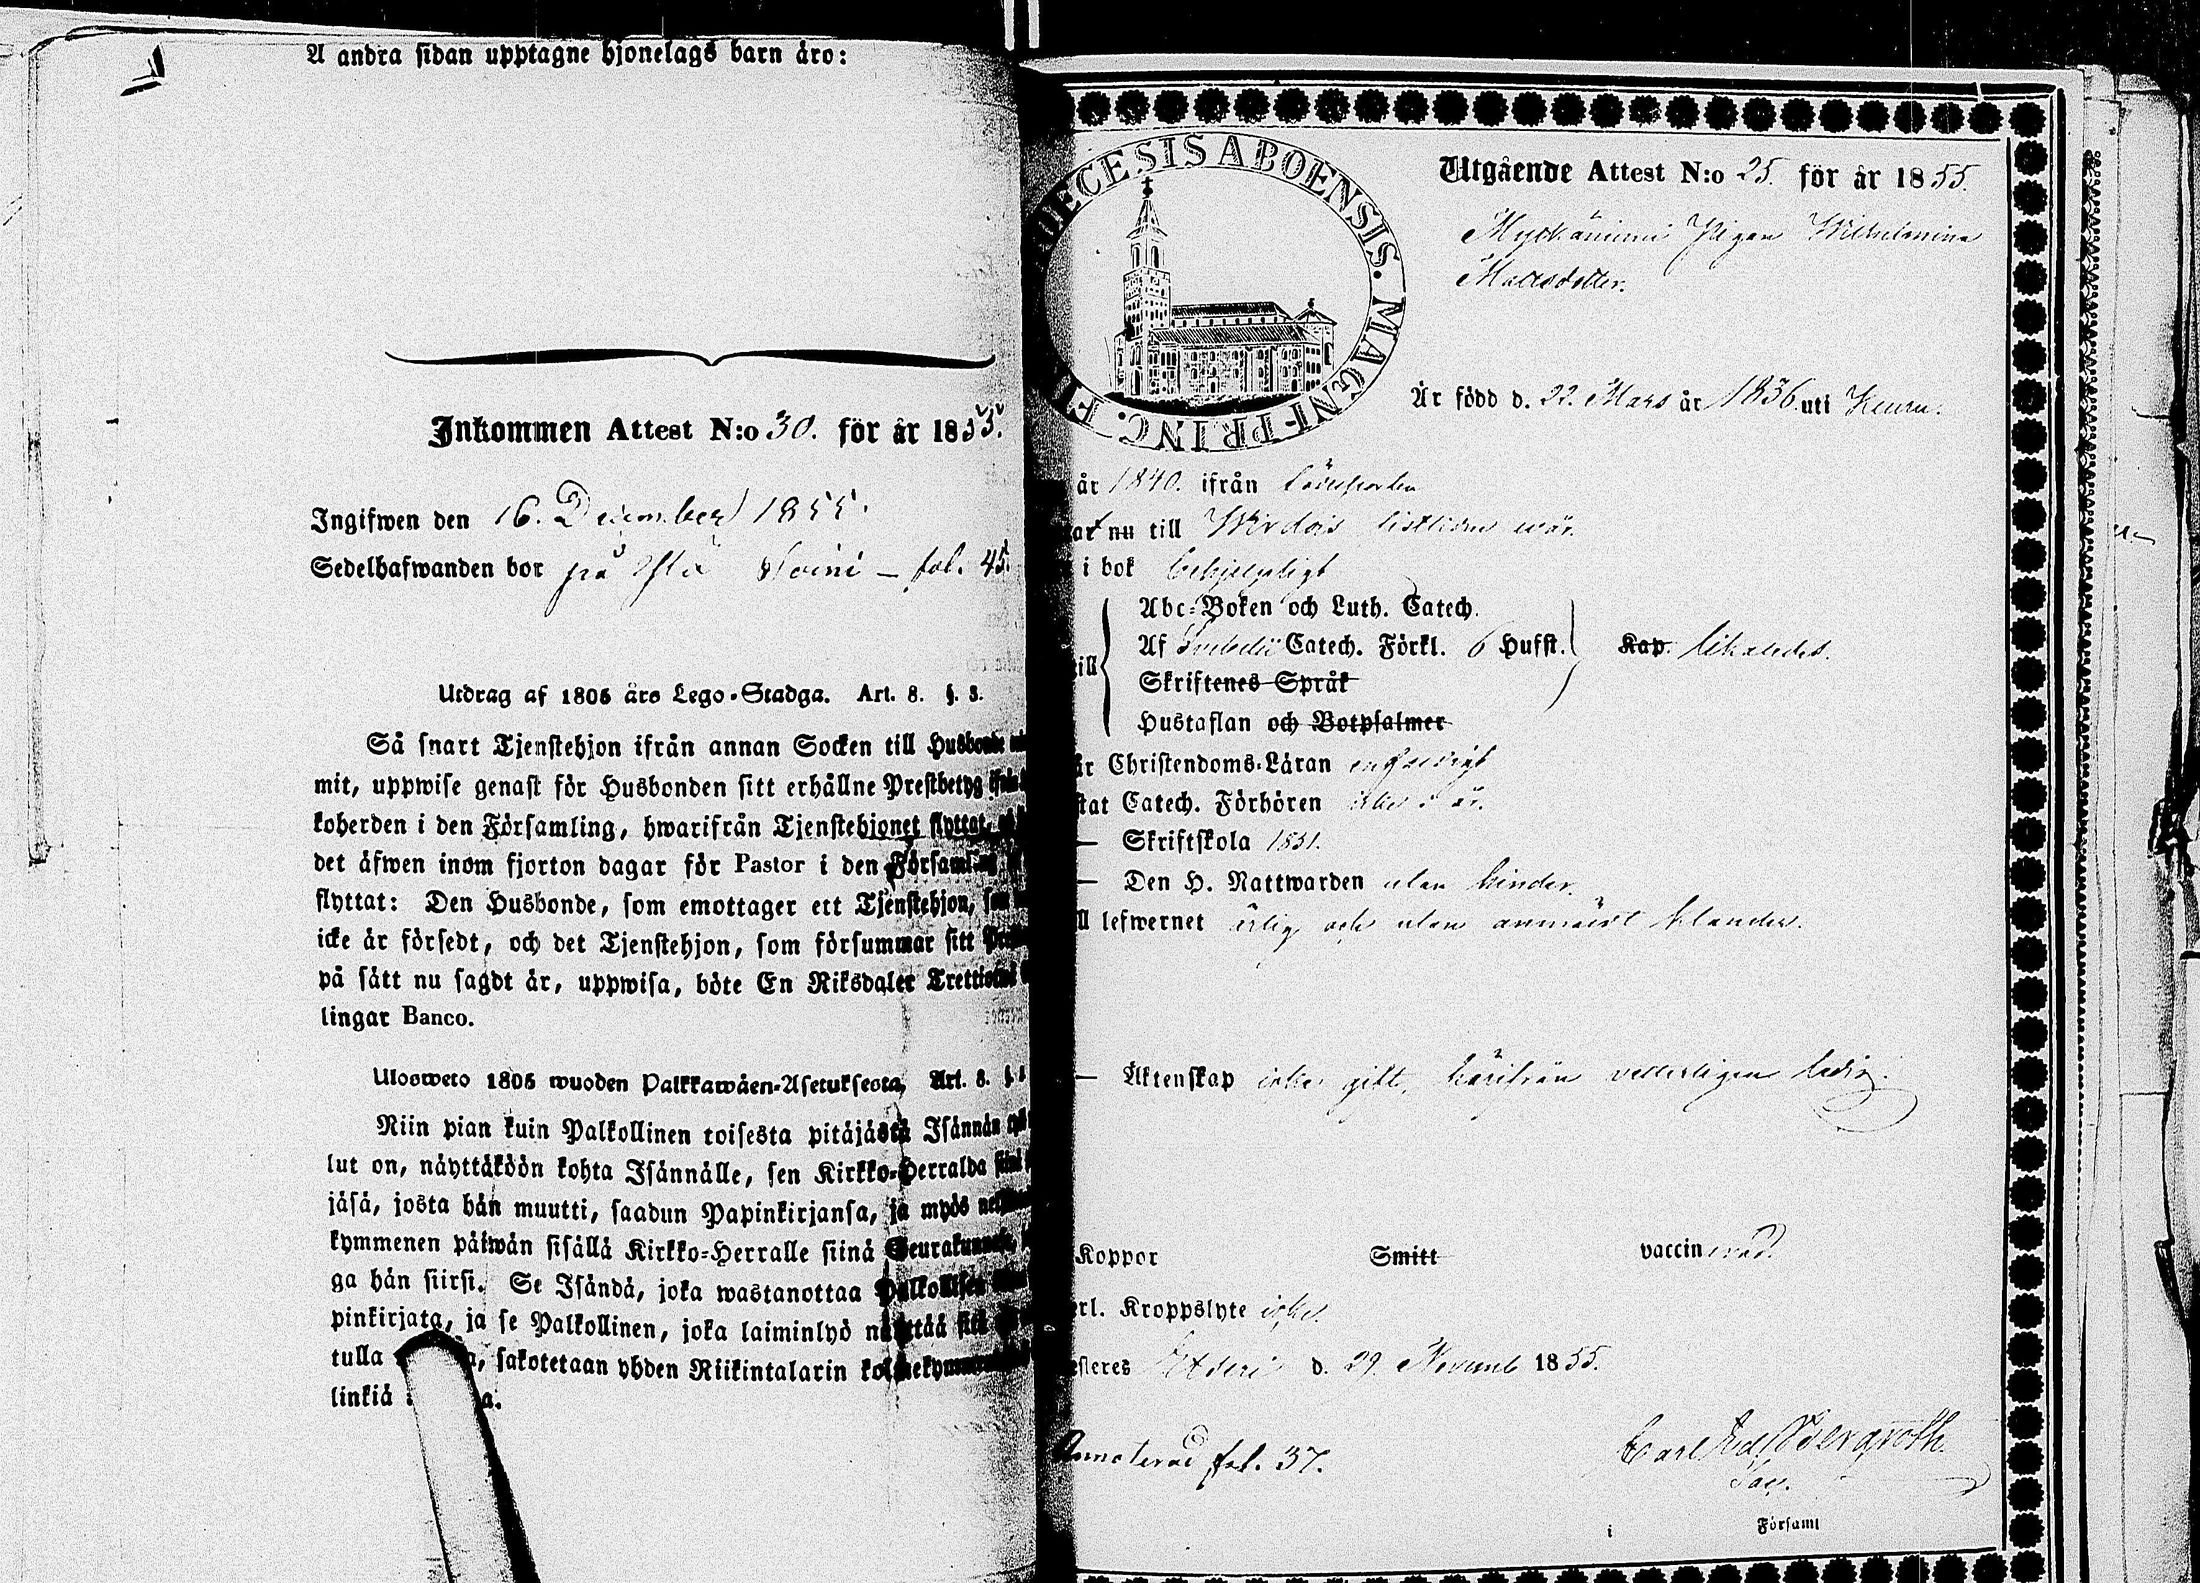 A andra sidan upptagne hjonelags barn äro:
Inkommen Attest N:o 30. för år 1855.
Ingifwen den 16. December 1855.
Sedelhafwanden bor på Soini – fol. 45.
Utdrag af 1805 års Lego-Stadga. Art. 8. §. 3.
Så snart Tjenstehjon ifrån annan Socken till Husbonde
mit, uppwise genast för Husbonden sitt erhållne Prestbetyg
koherden i den Församling, hwarifrån Tjenstehjonet flyttat,
det äfwen inom fjorton dagar för Pastor i den Församling
flyttat: Den Husbonde, som emottager ett Tjenstehjon,
icke är försedt, och det Tjenstehjon, som försummar sitt
på sätt nu sagdt är, uppwisa, böte En Riksdaler
lingar Banco.
Ulosweto 1805 wuoden Palkkawäen-Asetuksesta, Art. 8. §.
Niin pian kuin Palkollinen toisesta pitäjästä Isännän
lut on, näyttäköön kohta Isännälle, sen Kirkko-Herralda
jäsä, josta hän muutti, saadun Papinkirjansa, ja myös
kymmenen päiwän sisällä Kirkko-Herralle siinä Seurakunnasa,
ga hän siirsi. Se Isändä, joka wastanottaa Palkollisen
pinkirjata, ja se Palkollinen, joka laiminlyö näyttää sitä
tulla sakotetaan yhden Riikintalarin
linkiä
DIOECESIS ABOENSIS. MAGNI-PRINC. FI
Utgående Attest N:o 25. för år 1855.
Myckänimi Pigan Wilhelmina
Mattsdotter.
Är född d. 22. Mars år 1836. uti Keuru.
år 1840. ifrån
nu till Wirdois
i bok behjelpligt
Abc-Boken och Luth. Catech.
Af Svebelii Catech. Förkl. 6 Hufst. Kap. likaledes.
Skriftenes Språk
Hustaflan och Botpsalmer
Christendoms-Läran enfaldigt
Catech. Förhören i år.
— Skriftskola 1851.
— Den H. Nattwarden utan hinder.
lefwernet ärlig och utan anmärkt klander.
— Äktenskap icke gift, härifrån veterligen ledig.
Koppor Smitt vaccinerad.
Kroppslyte icke.
Etseri d. 29. Novemb 1855.
Annoterad fol. 37.
Carl Bergroth
Sac.
i Församl